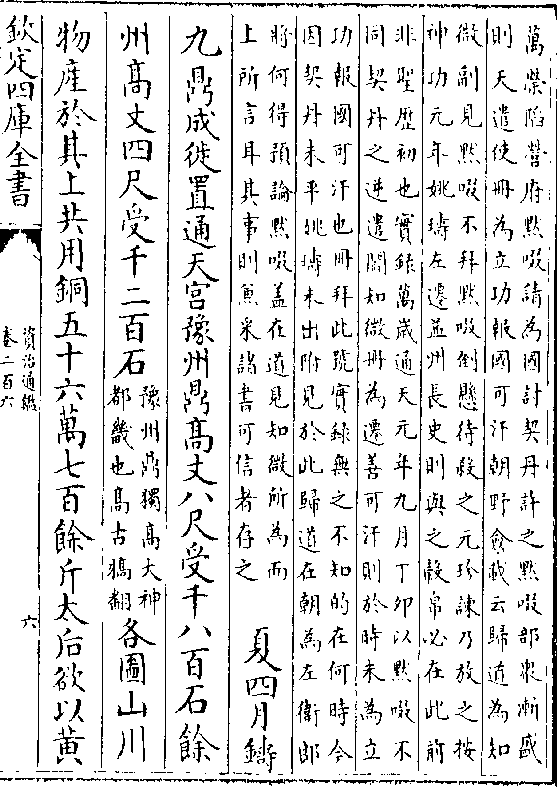 萬榮陷營府黙啜請為國討契丹許之黙啜部衆漸盛
則天遣使冊為立功報國可汗朝野僉載云歸道為知
微副見黙啜不拜黙啜倒懸待殺之元珍諫乃放之按
神功元年姚璹左遷益州長史則與之穀帛必在此前
非聖歴初也實録萬歲通天元年九月丁卯以黙啜不
同契丹之逆遣閻知微冊為遷善可汗則於時未為立
功報國可汗也冊拜此號實録無之不知的在何時今
因契丹未平姚璹未出附見於此歸道在朝為左衛郎
將何得預論黙啜蓋在道見知微所為而
上所言耳其事則兼采諸書可信者存之
夏四月鑄
九鼎成徙置通天宫豫州鼎高丈八尺受千八百石餘
州高丈四尺受千二百石
豫州鼎獨高大神
都畿也高古鴞翻
各圖山川
物產於其上共用銅五十六萬七百餘斤太后欲以黄
欽定四庫全書
資治通鑑
卷二百六
六